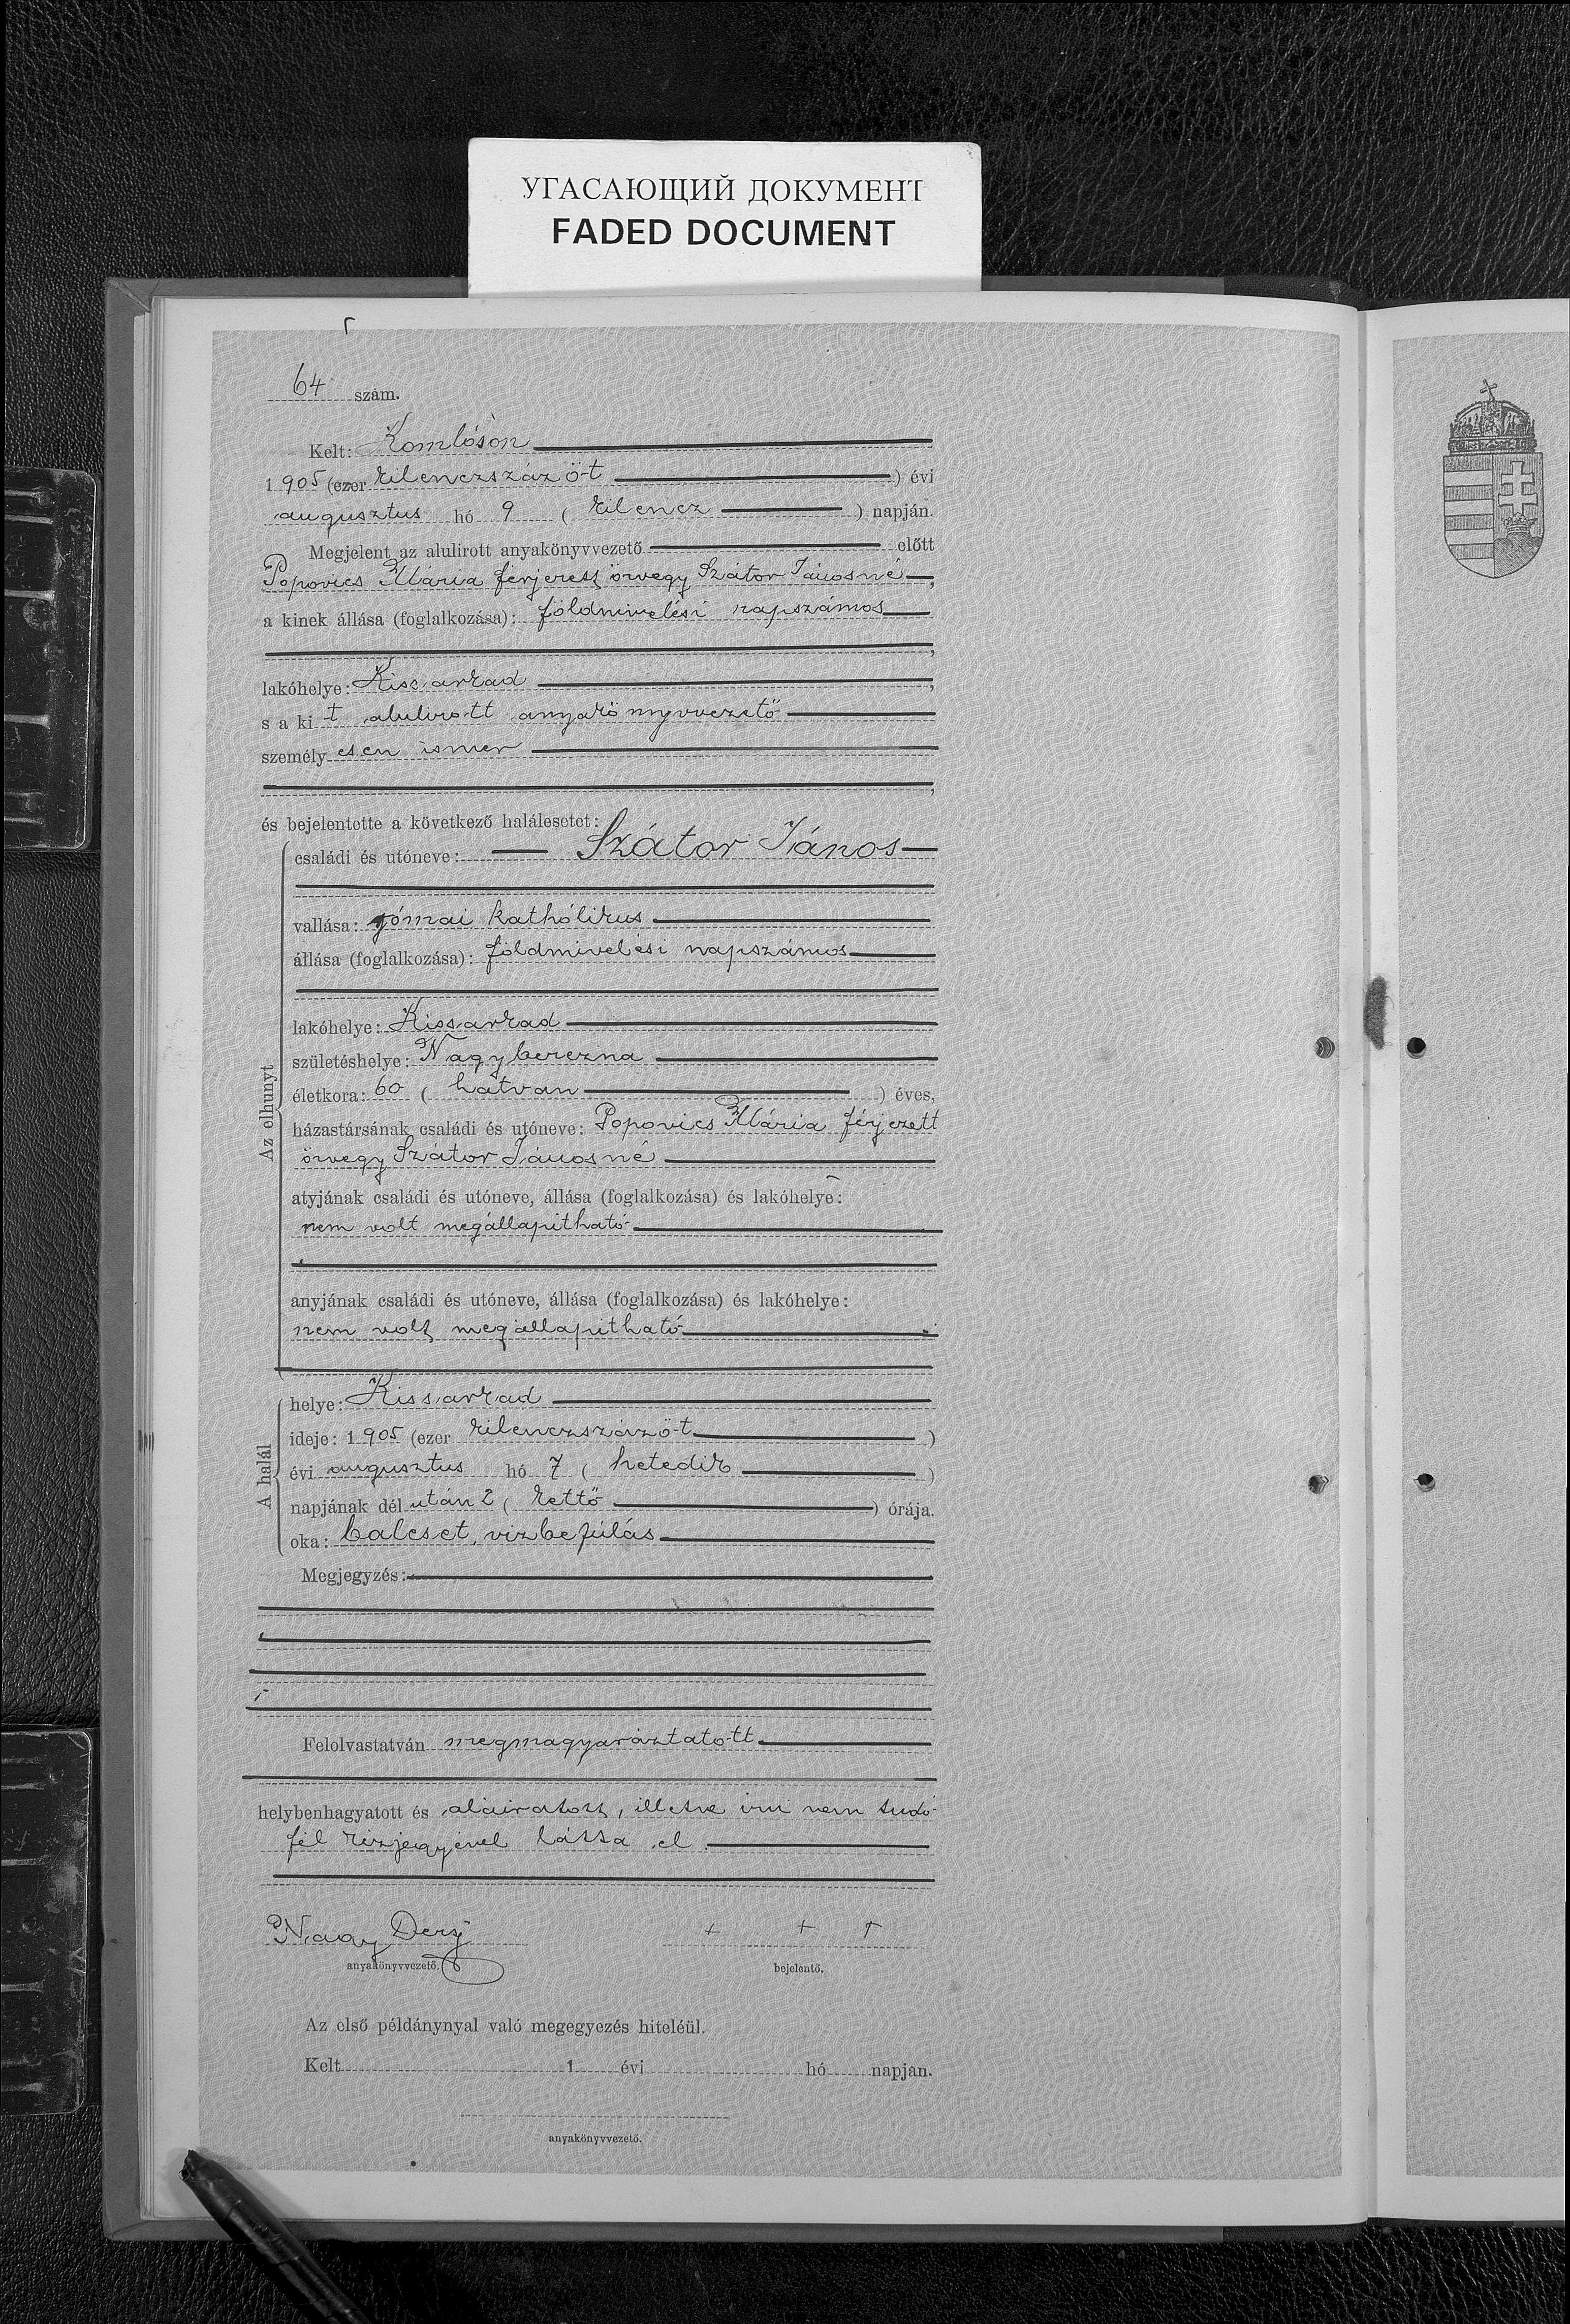 УГАСАЮЩИЙ ДОКУМЕНТ
FADED DOCUMENT
64 szám.
Kelt: Komlóson
1905 (ezer kilenczszáz öt) évi
augusztus hó 9 (kilencz) napján.
Megjelent az alulirott anyakönyvvezető előtt
Popovics Mária férjezett özvegy Szátor Jánosné,
a kinek állása (foglalkozása): földmivelési napszámos
,
lakóhelye: Kissarkad,
s a ki t alulirott anyakönyvvezető
személyesen ismer
,
és bejelentette a következő halálesetet:
családi és utóneve: Szátor János
vallása: római kathólikus
állása (foglalkozása): földmivelési napszámos
lakóhelye: Kissarkad
születéshelye: Nagyberezna
életkora: 60 (hatvan) éves,
házastársának családi és utóneve: Popovics Mária férjezett
özvegy Szátor Jánosné
atyjának családi és utóneve, állása (foglalkozása) és lakóhelye:
nem volt megállapitható
anyjának családi és utóneve, állása (foglalkozása) és lakóhelye:
nem volt megállapitható
Az elhunyt
helye: Kissarkad
ideje: 1905 (ezer kilenczszázöt)
évi augusztus hó 7 (hetedik)
napjának dél után 2 (kettő) órája.
oka: baleset, vizbefúlás
A halál
Megjegyzés:
Felolvastatván megmagyaráztatott
helybenhagyatott és aláiratott, illetve irni nem tudó
fél kézjegyével lássa el
Nagy + + +
anyakönyvvezető. bejelentő.
Az első példánynyal való megegyezés hiteléül.
Kelt 1 évi hó napján.
anyakönyvvezető.